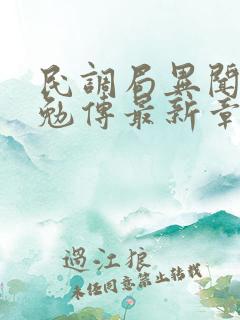 民調局異聞
勉傳最新章
過江狼
未经同意禁止转载